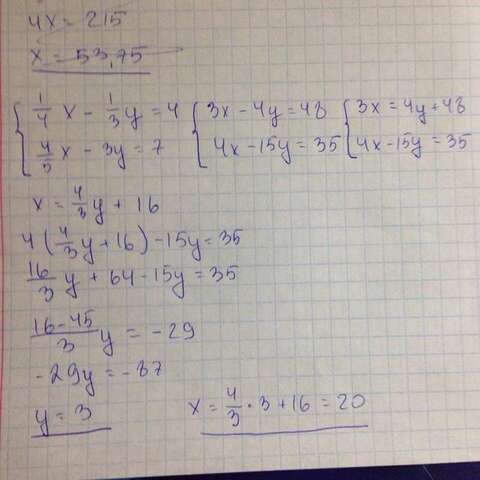 4x = 215
x = 53,75
{ 1/4 x - 1/3 y = 4 { 3x - 4y = 48 { 3x = 4y + 48
4/5 x - 3y = 7 4x - 15y = 35 4x - 15y = 35
x = 4/3 y + 16
4(4/3 y + 16) - 15y = 35
16/3 y + 64 - 15y = 35
(16-45)/3 y = -29
-29y = -87
y = 3 x = 4/3 · 3 + 16 = 20